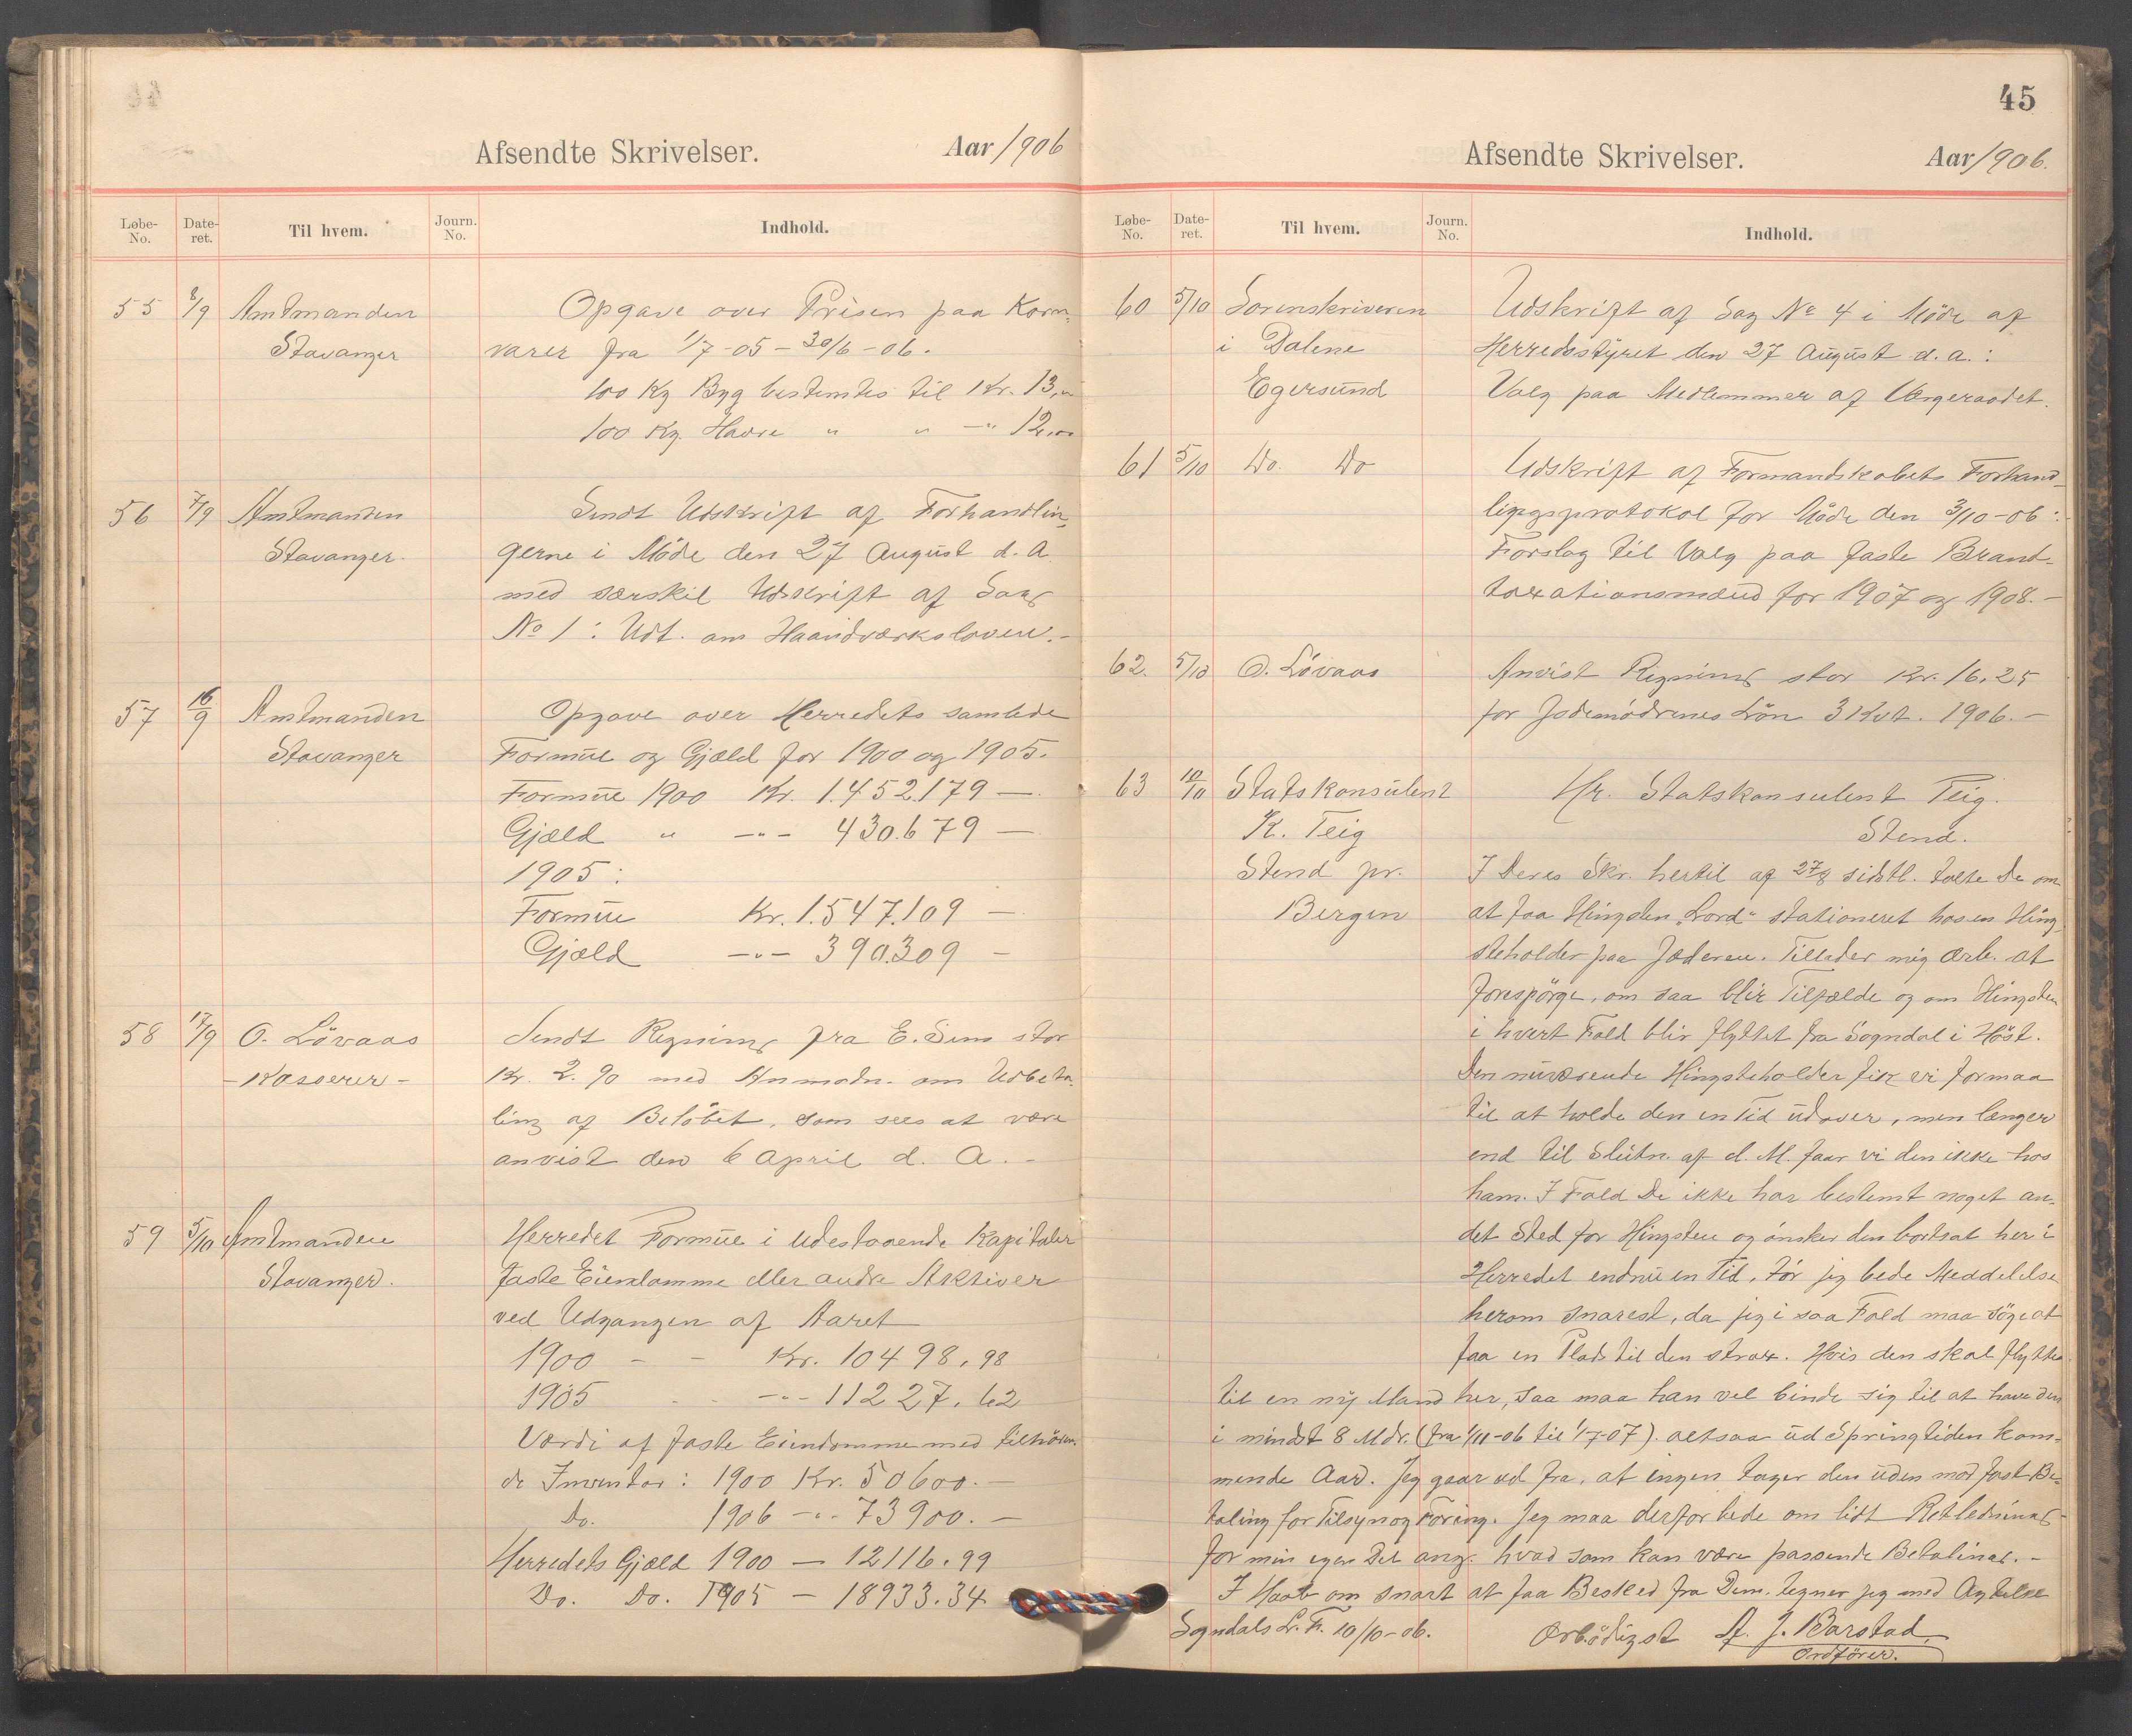 Afsendte Skrivelser.
Aar 1906
Løbe-No.
Date-ret.
Til hvem.
Journ. No.
Indhold.
55 8/9 Amtmanden Opgave over Prisen paa Korn-
Stavanger varer fra 1/7-05 - 30/6-06.
100 Kg Byg bestemtes til Kr. 13,00
100 Kg. Havre " " -"- 12,00
56 7/9 Amtmanden Sendt Udskrift af Forhandlin-
Stavanger. gerne i Møde den 27 August d. A.
med særskil Udskrift af Sag
No 1: Udt. om Haandværksloven.-
57 16/9 Amtmanden Opgave over Herredets samlede
Stavanger Formue og Gjæld for 1900 og 1905.
Formue 1900 Kr. 1.452.179 —
Gjæld " -"- 430.679 —
1905:
Formue Kr. 1.547.109 —
Gjæld -"- 390.309 —
58 17/9 O. Lövaas Sendt Regning fra E. Sem stor
- Kasserer - Kr. 2.90 med Anmodn. om Udbeta-
ling af Beløbet, som sees at være
anvist den 6 April d. A. -
59 5/10 Amtmanden Herredet Formue i udestaaende Kapitaler
Stavanger. faste Eiendomme eller andre Aktiver
ved Udgangen af Aaret
1900 - - Kr. 10498,98
1905 - - -"- 11227,62
Værdi af faste Eiendomme med tilhören-
de Inventar: 1900 Kr. 50600.—
Do. 1906 -"- 73900.—
Herredets Gjæld 1900 — 12116.99
Do. Do. 1905 — 18933.34
45
Afsendte Skrivelser.
Aar 1906.
Løbe-No.
Date-ret.
Til hvem.
Journ. No.
Indhold.
60 5/10 Sorenskriveren Udskrift af Sag No 4 i Møde af
i Dalene Herredsstyret den 27 August d. a.:
Egersund Valg paa Medlemmer af Værgeraadet.
61 5/10 Do. Do Udskrift af Formandskabets Forhand-
lingsprotokol for Møde den 3/10-06:
Forslag til Valg paa faste Brand-
taxationsmænd for 1907 og 1908.-
62. 5/10 O. Lövaas Anvist Regning stor Kr. 16,25
for Jodemödrenes Lön 3 Kvt. 1906.—
63 10/10 Statskonsulent Hr. Statskonsulent Teig.
K. Teig Stend.
Stend pr. I Deres Skr. hertil af 27/8 sidstl. talte De om
Bergen at faa Hingsten "Lord" stationeret hos en Hing-
steholder paa Jæderen. Tillader mig ærb. at
forespörge, om saa blir Tilfælde og om Hingsten
i hvert Fald blir flyttet fra Sogndal i Höst.
Den nuværende Hingsteholder fik vi formaa
til at holde den en Tid udover, men længer
end til Slutn. af d. M. faar vi den ikke hos
ham. I Fald De ikke har bestemt noget an-
det Sted for Hingsten og önsker den bortsat her i
Herredet endnu en Tid, tör jeg bede Meddelelse
herom snarest, da jeg i saa Fald maa söge at
faa en Plads til den strax. Hvis den skal flyttes
til en ny Mand her, saa maa han vel binde sig til at have den
i mindst 8 Mdr. (fra 1/11-06 til 1/7-07). altsaa ud Springtiden kom-
mende Aar. Jeg gaar ud fra, at ingen tager den uden mod fast Be-
taling for Tilsyn og Foring. Jeg maa derfor bede om lidt Retledning
for min egen Del ang. hvad som kan være passende Betaling. -
I Haab om snart at faa Besked fra Dem, tegner jeg med Agtelse
Sogndals L. F. 10/10-06. Ærbödigst A. J. Barstad,
Ordförer.